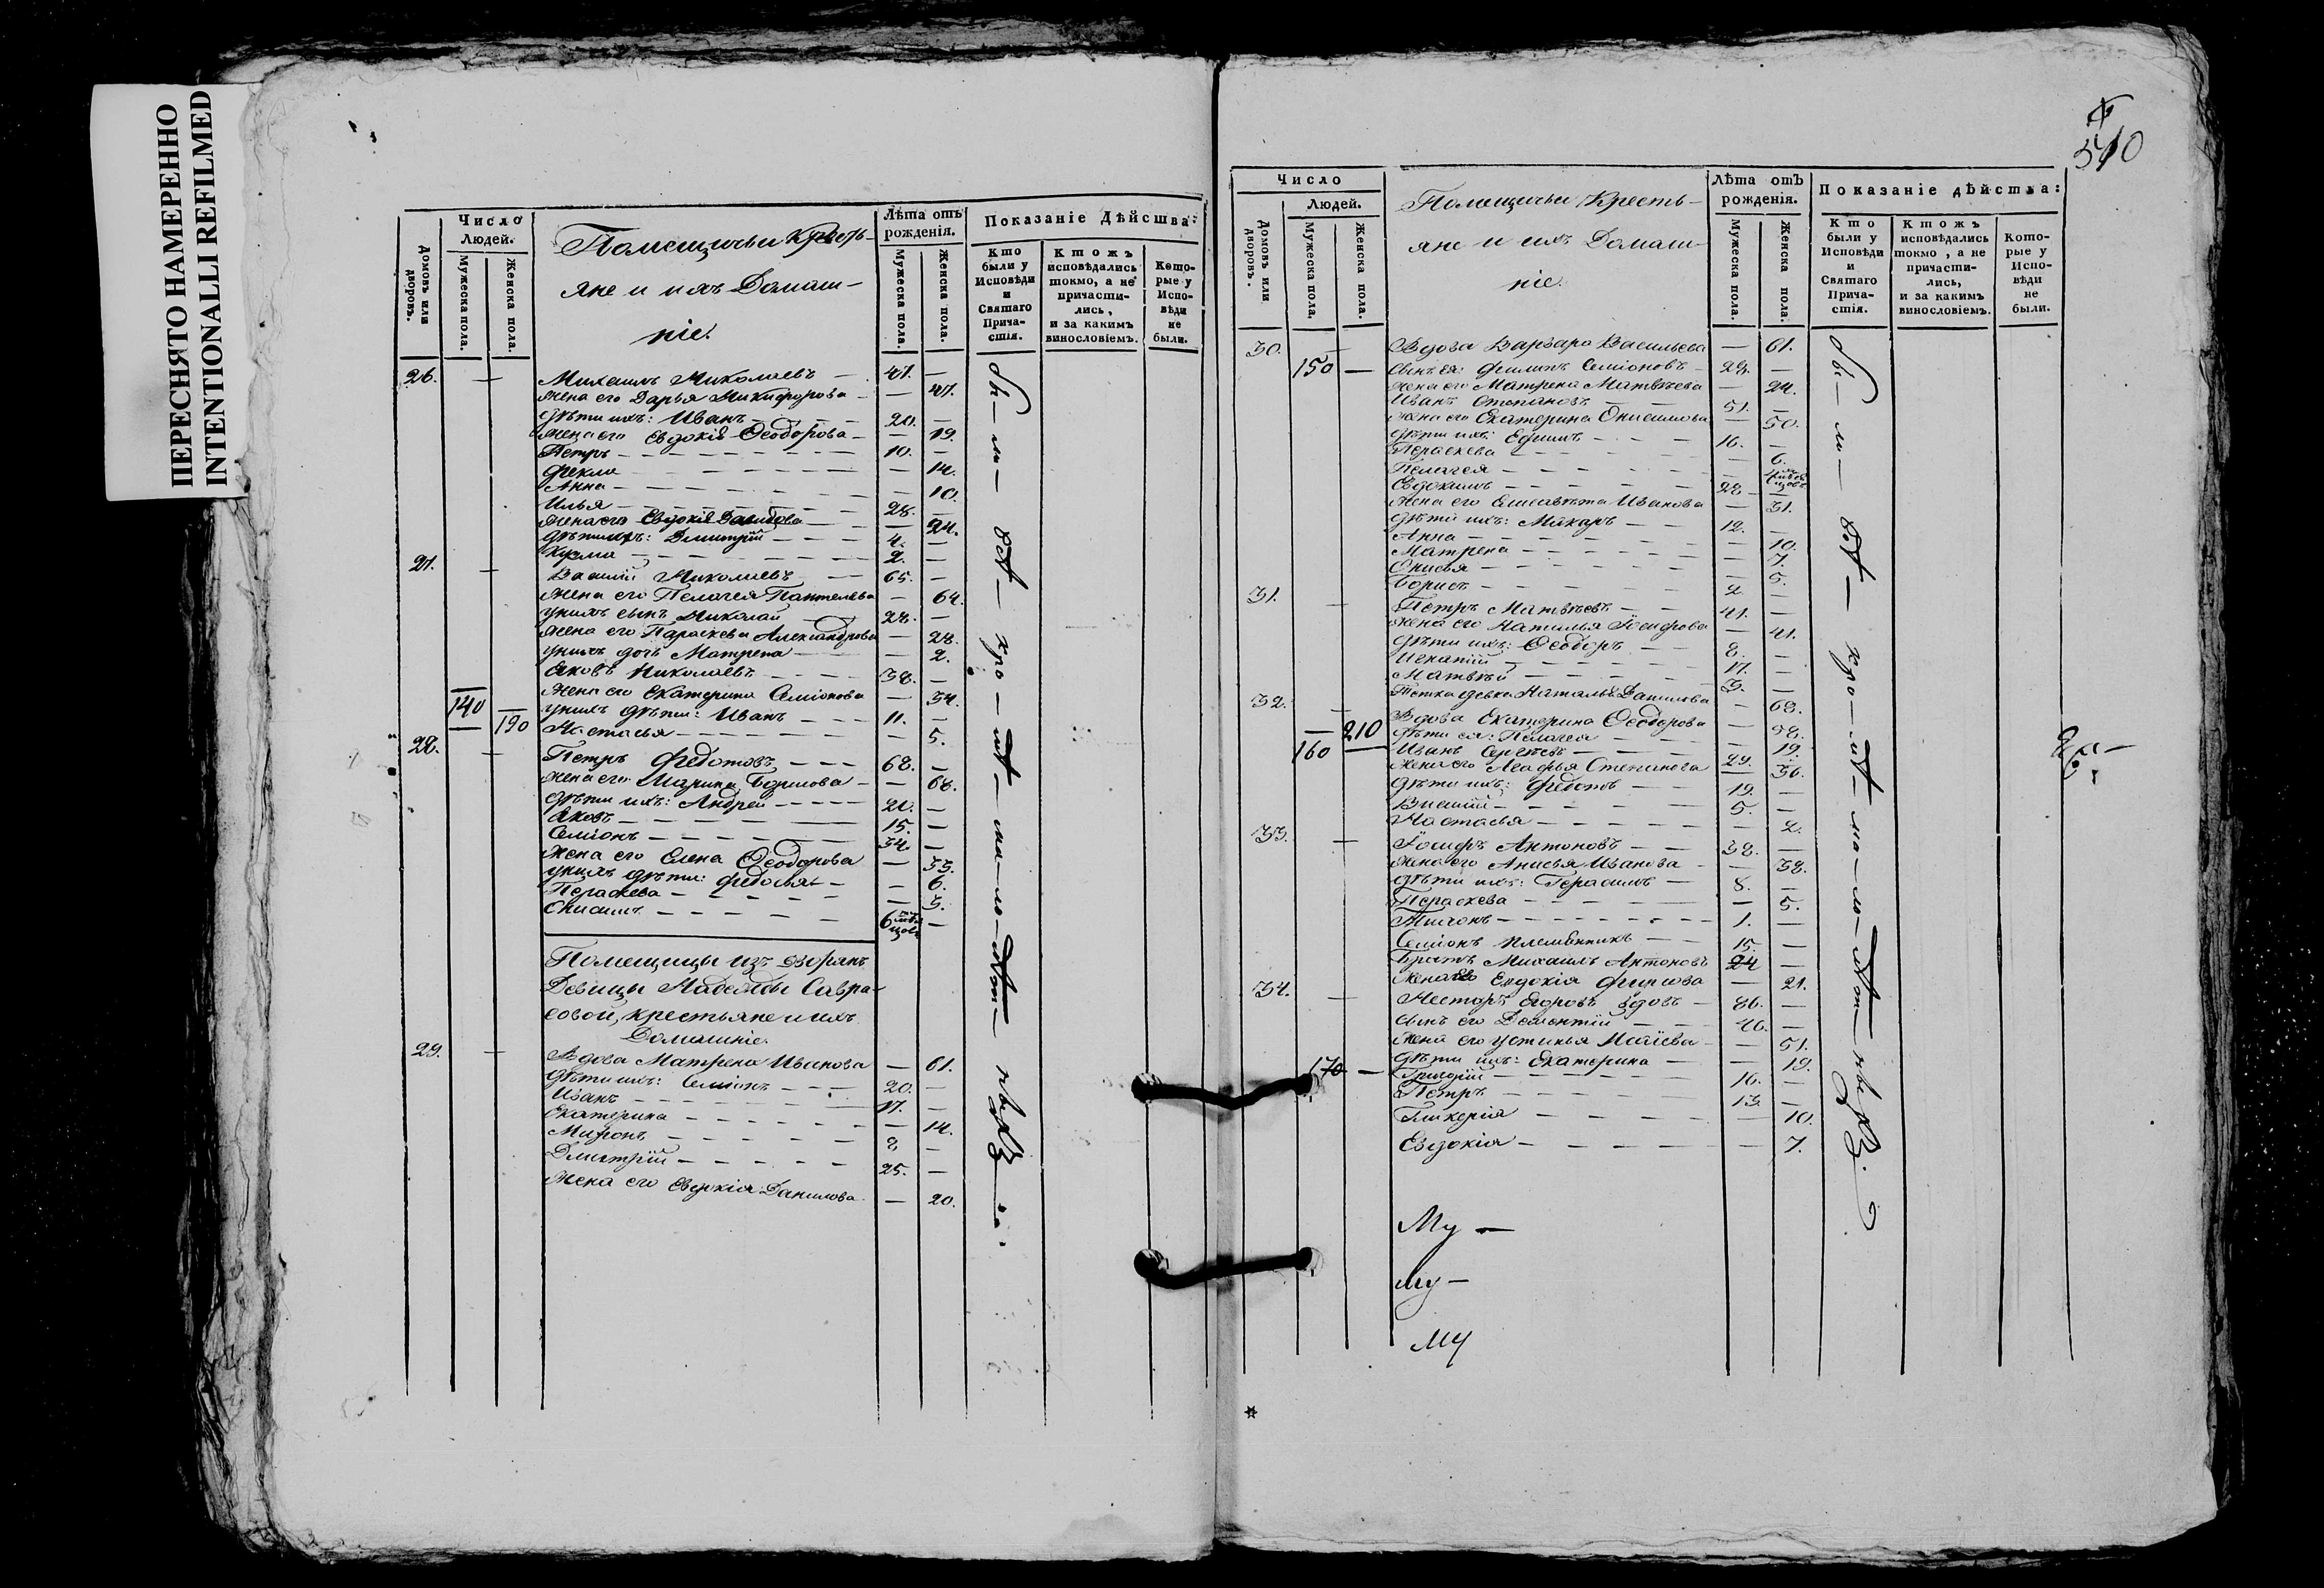 ПЕРЕСНЯТО НАМЕРЕННО
INTENTIONALLI REFILMED
Число
Людей.
Домовъ или дворовъ.
Мужеска пола.
Женска пола.
Помещичьи Кресть-
яне и ихъ Домаш-
ніе.
Лѣта отъ рожденія.
Мужеска пола.
Женска пола.
Показаніе Дѣйства:
Кто были у Исповѣди и Святаго Прича-стія.
Ктожъ исповѣдались токмо, а не причасти-лись, и за какимъ винословіемъ.
Кото-рые у Испо-вѣди не были.
26. — Михаилъ Николаевъ — 47. —
жена его Дарья Никифорова — — 47.
дѣти ихъ: Иванъ — 20. —
жена его Евдокія Ѳеодорова — — 19.
Петръ — 10. —
Фекла — — 14.
Анна — — 10.
Илья — 28. —
жена его Евдокія Давидова — — 24.
дѣти ихъ: Димитрій — 4. —
Кузма — 2. —
27. — Василій Николаевъ — 65. —
жена его Пелагея Пантелѣва — 64.
у нихъ сынъ Николай 28. —
жена его Параскева Александрова — 28.
у нихъ дочь Матрена — — 2.
Яковъ Николаевъ — 38. —
жена его Екатерина Семіонова — 34.
140 у нихъ дѣти: Иванъ — 11. —
190 Настасья — — 5.
28. — Петръ Федотовъ — 68. —
жена его Марина Борисова — — 68.
дѣти ихъ: Андрей — 20. —
Яковъ — 15. —
Семіонъ — 34. —
жена его Елена Ѳеодорова — 33.
у нихъ дѣти: Федосья — — 6.
Пераскева — — 3.
Онисимъ — 6 —
Помещицы изъ дворянъ
Девицы Надежды Савра-
совой, крестьяне и ихъ
Домашніе.
29. — Вдова Матрена Иванова — 61.
дѣти ихъ: Семіонъ — 20. —
Иванъ — 17. —
Екатерина — — 14.
Миронъ — 8 —
Дмитрій — 25. —
жена его Евдокія Данилова — 20.
510
Число
Людей.
Домовъ или дворовъ.
Мужеска пола.
Женска пола.
Помещичьи Кресть-
яне и ихъ Домаш-
ніе.
Лѣта отъ рожденія.
Мужеска пола.
Женска пола.
Показаніе дѣйства:
Кто были у Исповѣди и Святаго Прича-стія.
Ктожъ исповѣдались токмо, а не причасти-лись, и за какимъ винословіемъ.
Кото-рые у Испо-вѣди не были.
30. — Вдова Варвара Васильева — 61.
150 — сынъ ея: Филипъ Семіоновъ — 28. —
жена его Матрена Матвѣева — 24.
Иванъ Степановъ — 51. —
жена его Екатерина Онисимова — 50.
дѣти ихъ: Ефимъ — 16. —
Пераскева — — 6.
Пелагея —
Евдокимъ — 28 —
жена его Елисавета Иванова — 31.
дѣти ихъ: Макаръ — 12. —
Анна — — 10.
Матрена — — 7.
Онисья — — 5.
Борисъ — 2 —
31. — Петръ Матвѣевъ — 41. —
жена его Наталья Іосифова — 41.
дѣти ихъ: Ѳеодоръ — 8. —
Игнатій — 17. —
Матвѣй — 3. —
Тетка девка Наталья Данилова — 68.
32. — Вдова Екатерина Ѳеодорова — 38.
210 дѣти ея: Пелагея — — 19.
160 — Иванъ Сергѣевъ — 29. —
жена его Агафья Степанова — 36.
дѣти ихъ: Федотъ — 19. —
Василій — 5. —
Настасья — — 2.
33. — Іосифъ Антоновъ — 38. —
жена его Анисья Иванова — 38.
дѣти ихъ: Герасимъ — 8. —
Пераскева — — 5.
Тихонъ — 1. —
Семіонъ племянникъ — 15. —
Братъ Михаилъ Антоновъ 24 —
жена его Евдокія Фирсова — 21.
34. — Несторъ Егоровъ вдовъ — 86. —
сынъ его Дементій — 46. —
жена его Устинья Маіева — 51.
170 — дѣти ихъ: Екатерина — — 19.
Григорій — 16. —
Петръ — 13. —
Гликерія — — 10.
Евдокія — — 7.
Му —
Му —
Му